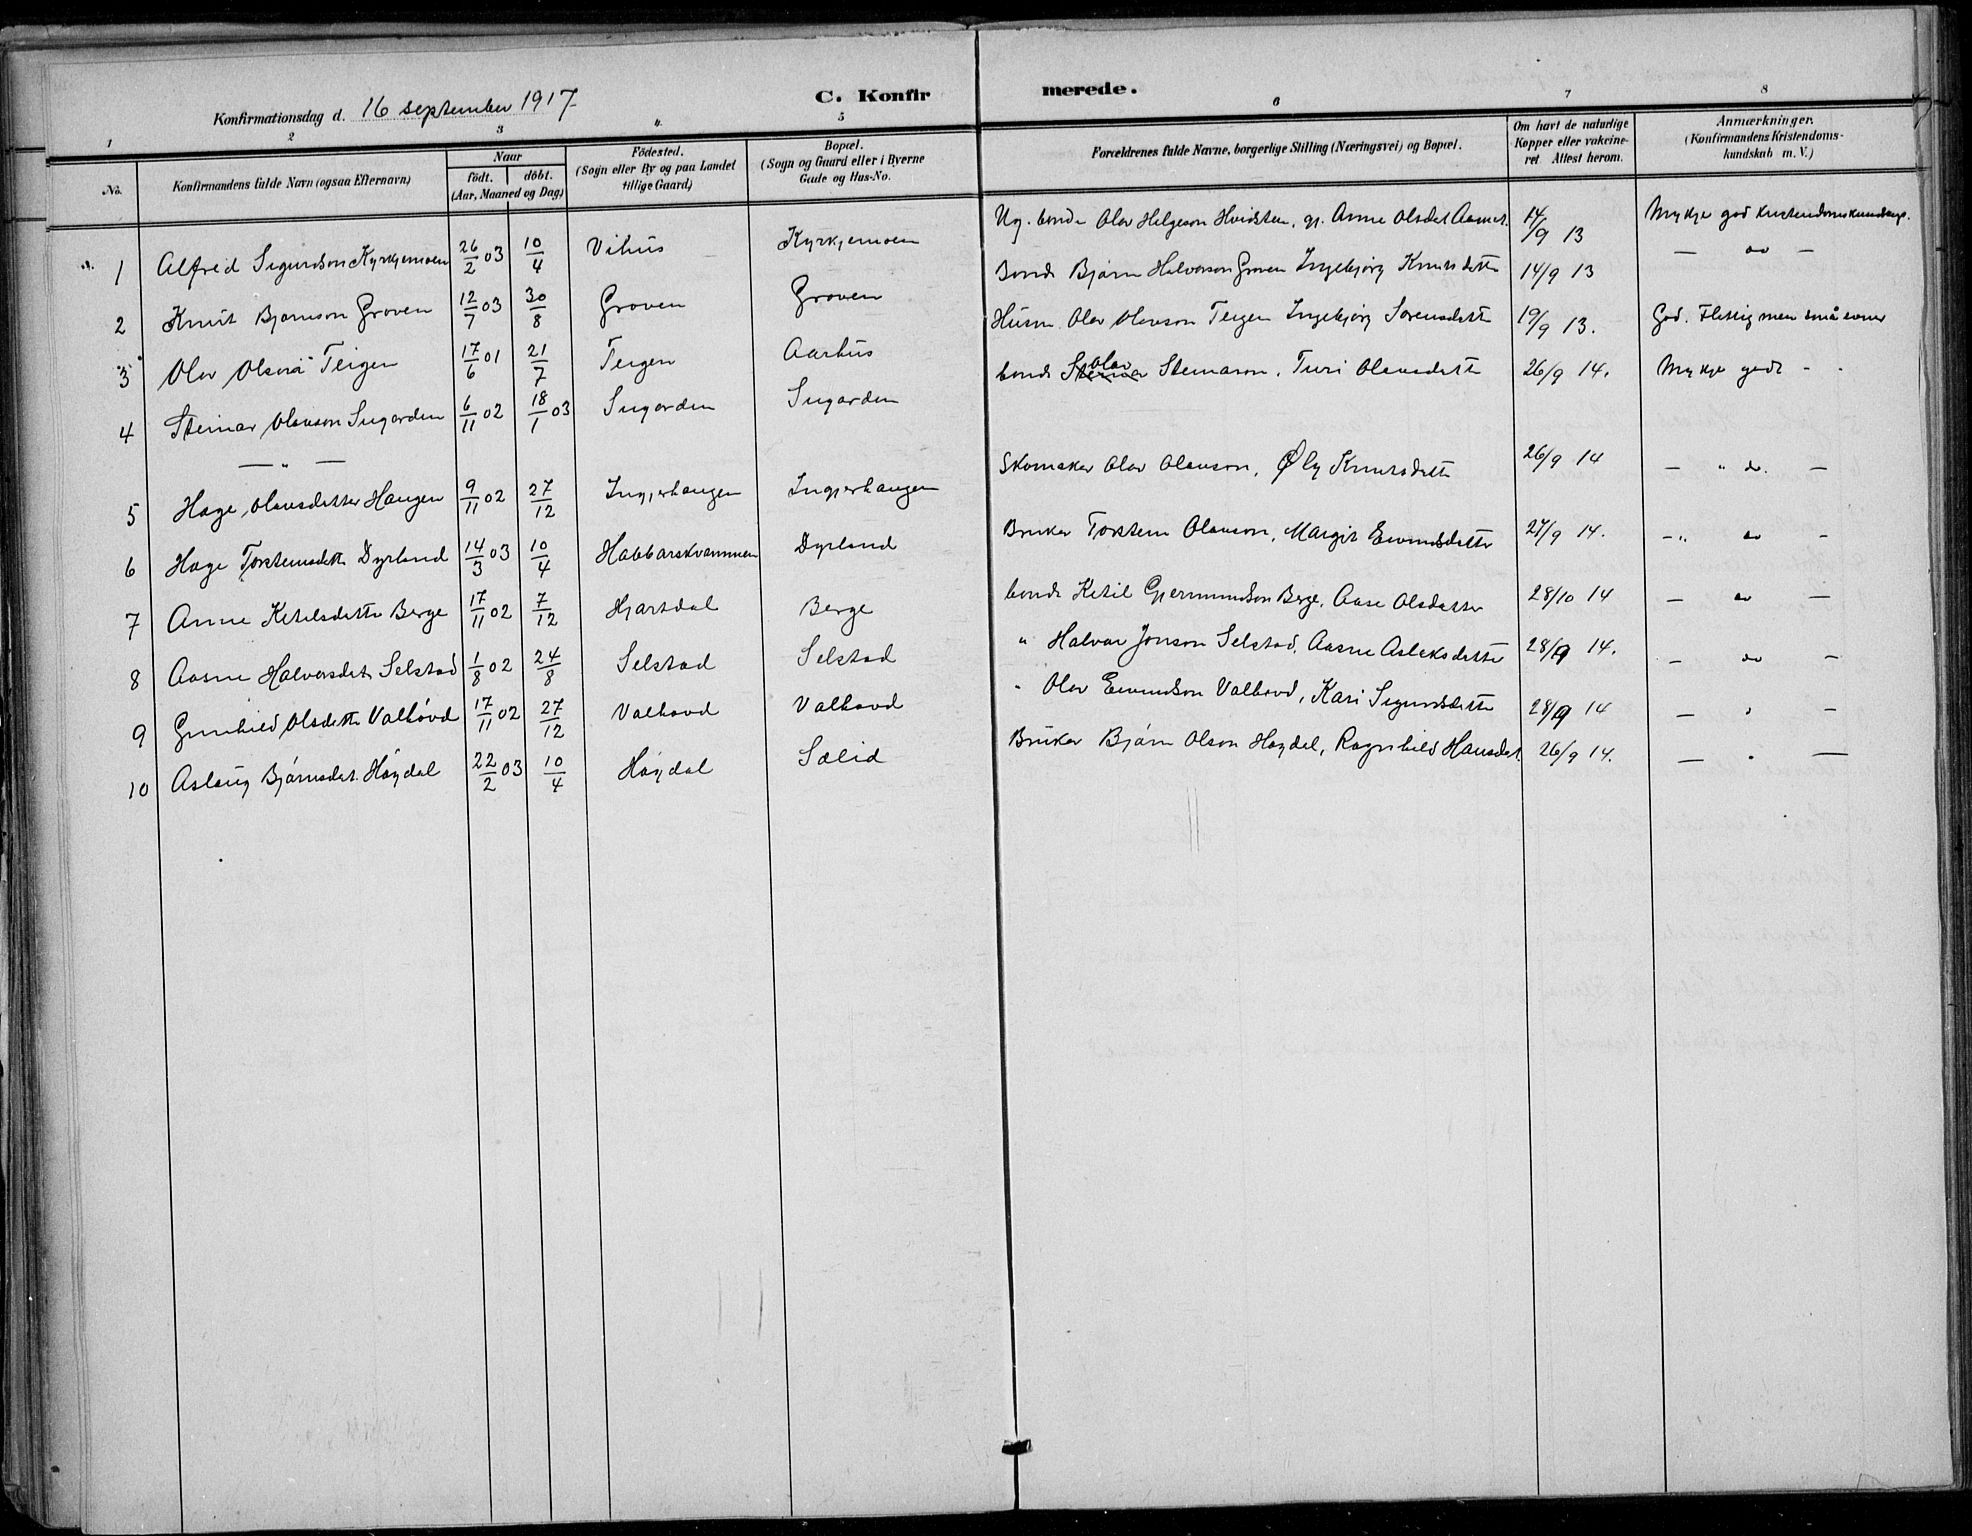 C. Konfirmerede.
Konfirmationsdag d. 16 september 1917
1 2 3 4. 5 6 7 8
No.
Konfirmandens fulde Navn (ogsaa Efternavn)
Naar
födt. döbt.
(Aar, Maaned og Dag)
Födested.
(Sogn eller By og paa Landet
tillige Gaard)
Bopæl.
(Sogn og Gaard eller i Byerne
Gade og Hus-No.
Forældrenes fulde Navne, borgerlige Stilling (Næringsvei) og Bopæl.
Om havt de naturlige
Kopper eller vakcine-
ret. Attest herom.
Anmærkninger.
(Konfirmandens Kristendoms-
kundskab m. V.)
1 Alfred Sigurdson Kyrkjemoen 26/2 03 10/4 Vihus Kyrkjemoen Ug. bonde Olav Helgeson Hvidsten, gj. Anne Olsdat Aamot. 14/9 13 Mykje god kristendomskundskap.
2 Knut Bjørnson Groven 12/7 03 30/8 Groven Groven Bonde Bjørn Halvorson Groven Ingebjørg Knutsdotter 14/9 13 — do —
3 Olav Olsen Teigen 17/6 01 21/7 Teigen Aarhus Husm. Olav Olavson Teigen Ingebjørg Sørensdotte 19/9 13. God. Flittig men små evner
4 Steinar Olavson Sugarden 6/11 02 18/1 03 Sugarden Sugarden bonde Olav Steinason, Turi Olavsdotte 26/9 14. Mykje godt - -
— " —
5 Hæge Olavsdatter Haugen 9/11 02 27/12 Ingjerhaugen Ingjerhaugen Skomaker Olav Olavson, Øly Knutsdotte 26/9 14 — " do. —
6 Hæge Torsteinsdotte Dyrland 14/3 03 10/4 Habbarskvammen Dyrland Bruker Torstein Olavson, Margit Eivindsdotter 27/9 14. — " do —
7 Anne Ketilsdotte Berge 17/11 02 7/12 Hjartdal Berge bonde Ketil Gjermundson Berge, Aase Olsdatter 28/10 14 — do —
8 Aasne Halvorsdat. Selstad 1/8 02 24/8 Selstad Selstad " Halvor Jonson Selstad, Aasne Aslaksdotte 28/9 14. — do —
9 Gunhild Olsdotte Valhovd 17/11 02 27/12 Valhovd Valhovd " Olav Eivindson Valhovd, Kari Sigurdsdotte 28/9 14 — " —
10 Aslaug Bjørnsdat. Høydal 22/2 03 10/4 Høydal Sælid Bruker Bjørn Olson Høydal, Ragnhild Hansdat. 26/9 14. — " —